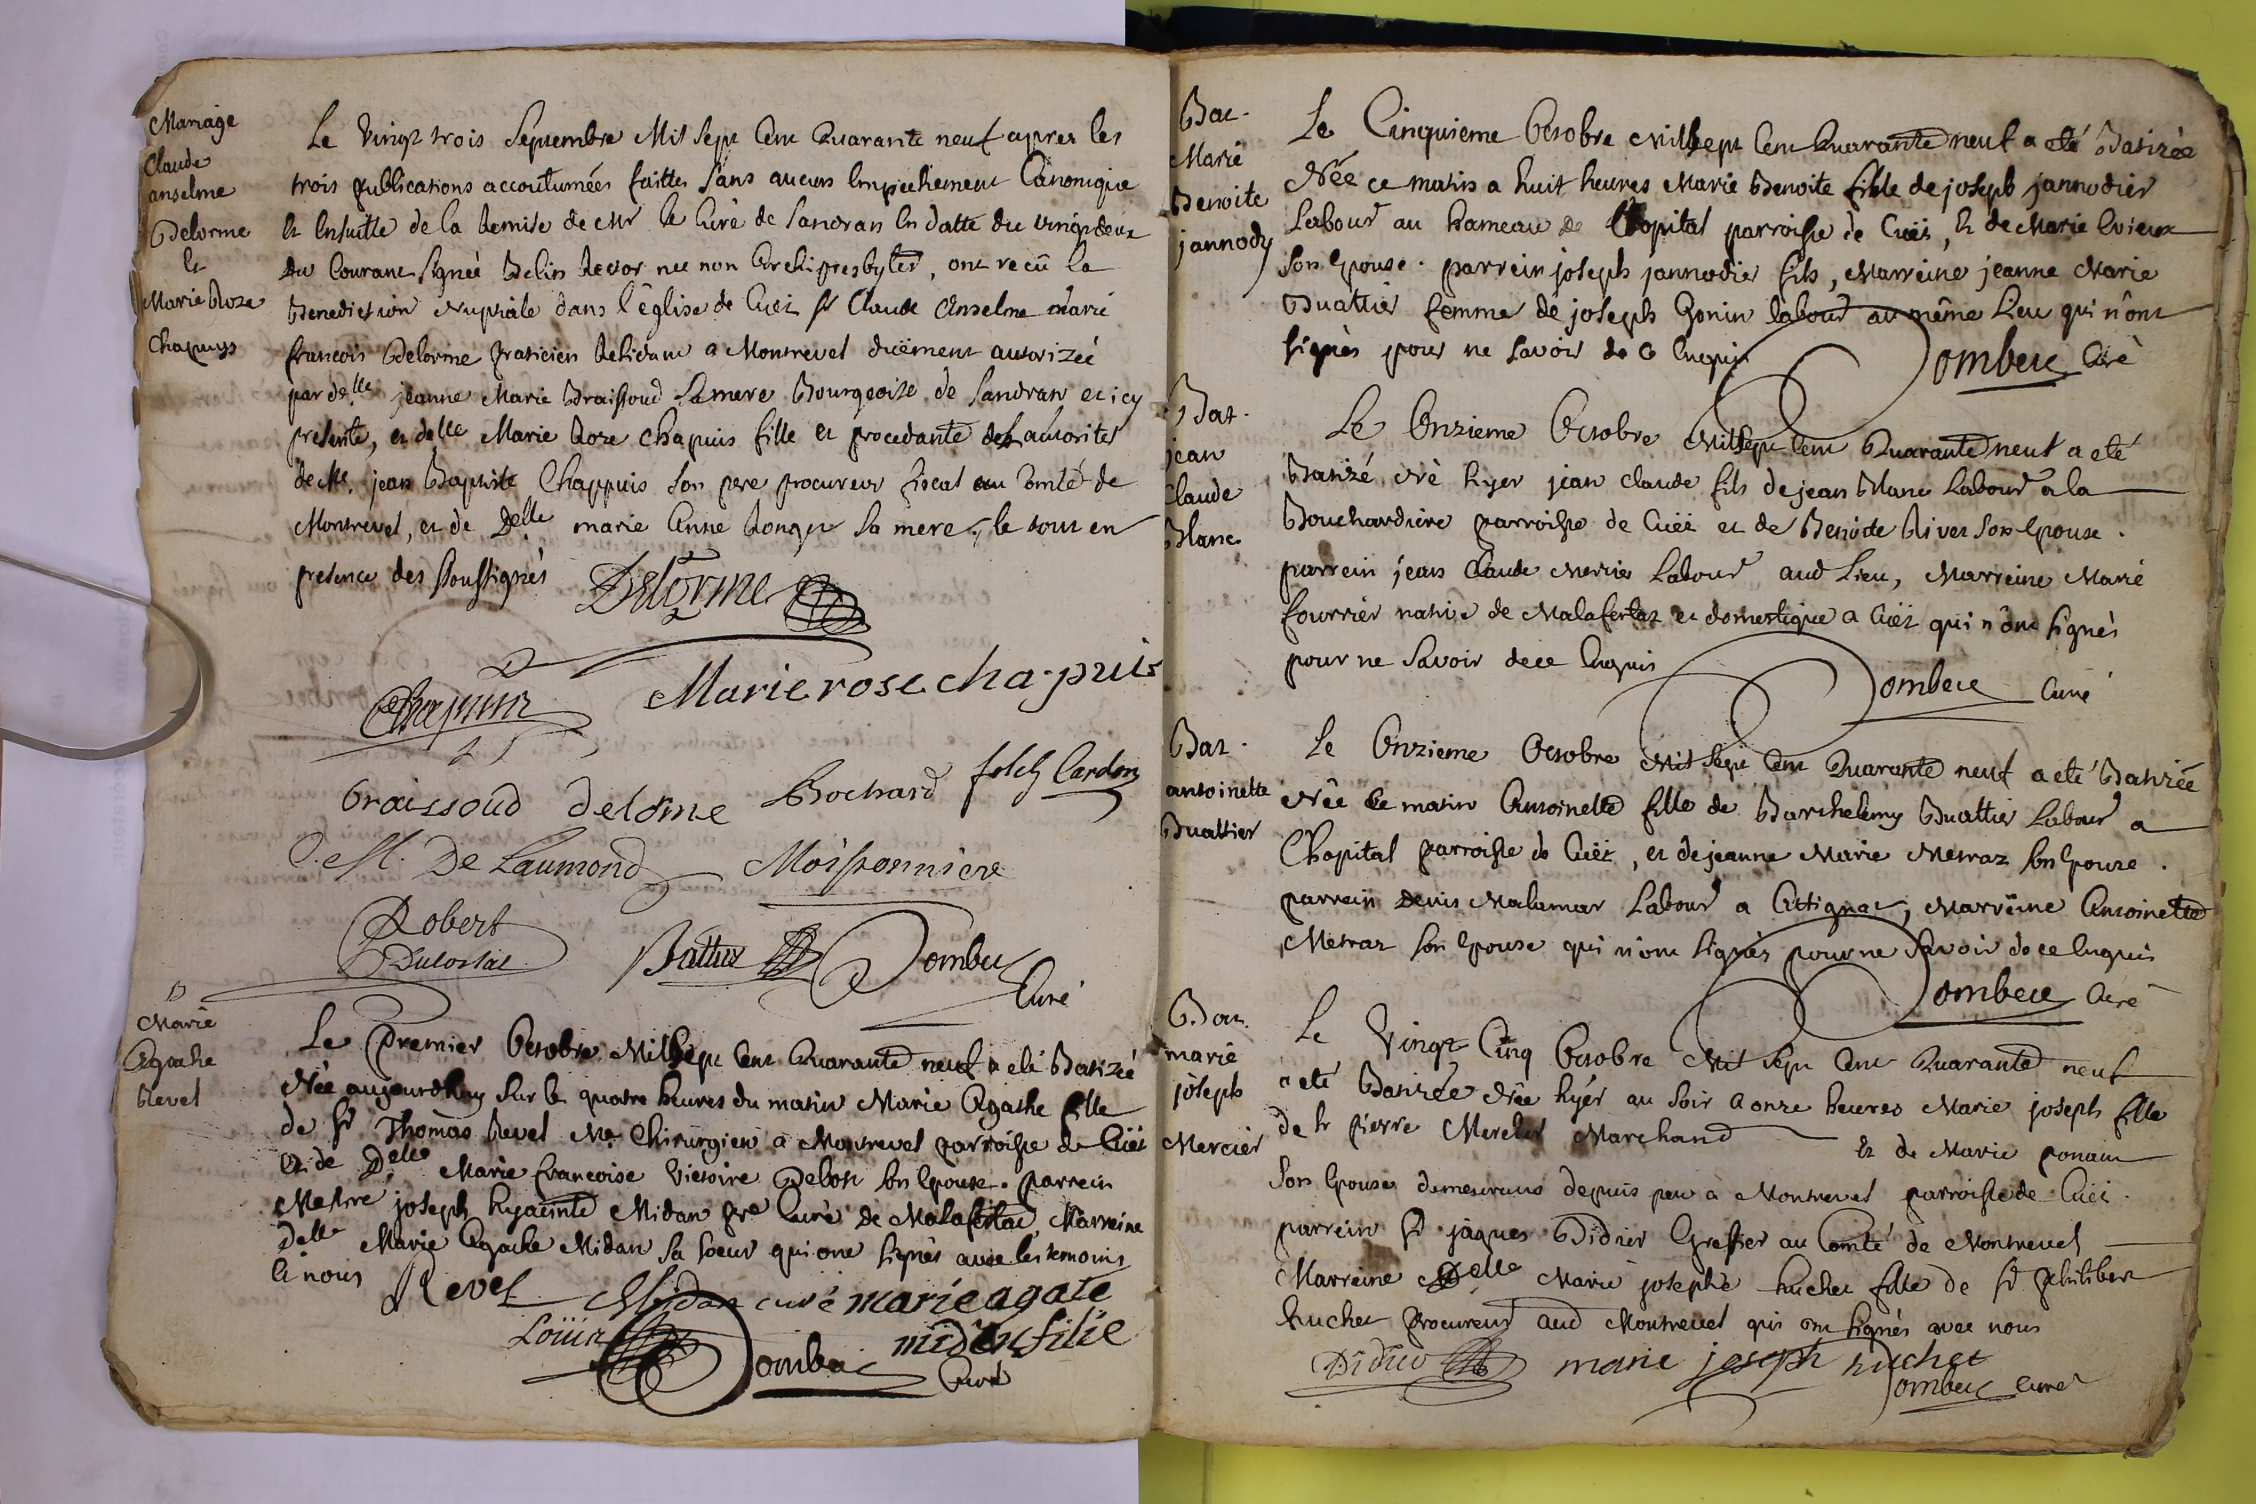 Mariage
Claude
anselme
Delorme
et
Marie Roze
Chapuys
Le vingt trois Septembre Mil Sept Cent Quarante neuf apres les
trois publications accoutumées faittes sans aucun Empechement Canonique
et Ensuitte de la Remise de Mr le Curé de Sandran En datte du vingt deux
du Courant signée Belin Rector nec non Archipresbyter, ont recû la
Benediction Nuptiale dans l'église de Cuët sr Claude Anselme Marie
francois Delorme praticien Residant a Montrevel duëment autorizéé
par delle jeanne Marie Braissoud sa mere Bourgeoise de Sandran et icy
presente, et delle Marie Roze Chapuis fille et procedante des autorités
de Me. jean Baptiste Chappuis son pere procureur fiscal au Comté de
Montrevel, et de Delle marie Anne Ronger sa mere, le tout en
presence des soussignés
Delorme
Chapuis
Marie rose cha.puis
braissoud delorme
Bochard
Cardon
De Laumond
Moissonniere
Robert
Ducostal
Dombey
Curé
B
Marie
Agathe
Revel
Le Premier Octobre Mil Sept Cent Quarante neuf a eté Batizéé
Née aujourdhuy sur les quatre heures du matin Marie Agathe fille
de sr Thomas Revel Me. Chirurgien a Montrevel parroisse de Cuët
Et de Delle Marie francoise Victoire Debost son Epouse. parrein
Messire joseph hyacinte Midan pre Curé de Malafretaz Marreine
Delle Marie Agathe Midan sa soeur qui ont signés avec les temoins
Et nous
Revel
Midan curé
marie agate
midan filie
Dombey
Curé
Bat.
Marie
Benoite
jannody
Le Cinquieme Octobre Mil Sept Cent Quarante neuf a eté Batizéé
Néé ce matin a huit heures Marie Benoite fille de joseph jannodier
Labour au hameau de l'hopital parroisse de Cuët, Et de Marie Evieux
son Epouse. parrein joseph jannodier fils, Marreine jeanne Marie
Buattier femme de joseph Gonin labour au même Lieu qui n'ont
signés pour ne savoir de ce Enquis
Dombey Curé
Bat.
jean
Claude
Blanc
Le Onzieme Octobre Mil Sept Cent Quarante neuf a eté
Batizé, Né hyer jean Claude fils de jean Blanc Labour a la
Bouchardiere parroisse de Cuët et de Benoite Rivet son Epouse.
parrein jean Claude Mercier Labour aud Lieu, Marreine Marie
fourrier native de Malafretaz et domestique a Cuët qui n'ont signés
pour ne savoir de ce Enquis
Dombey Curé
Bat.
antoinette
Buattier
Le Onzieme Octobre Mil Sept Cent Quarante neuf a eté Batizéé
Néé Ce matin Antoinette fille de Barthelemy Buattier Labour a
l'hopital parroisse de Cuët, et de jeanne Marie Metraz son Epouse.
parrein Denis Malamar Labour a Attignat, Marreine Antoinette
Metraz son Epouse qui n'ont signés pour ne savoir de ce Enquis
Dombey Curé
Bat.
marie
joseph
Mercier
Le Vingt Cinq Octobre Mil Sept Cent Quarante neuf
a eté Batizéé Néé hyér au soir a onze heures Marie joseph fille
de sr Pierre Mercier Marchand Et de Marie ponain
son Epouse demeurants depuis peu a Montrevel parroisse de Cuët.
parrein sr jaques Didier Greffier au Comté de Montrevel
Marreine Delle Marie josephe huchet fille de sr Philibert
huchet Procureur aud Montrevel qui ont signés avec nous
Didier
marie joseph huchet
Dombey Curé